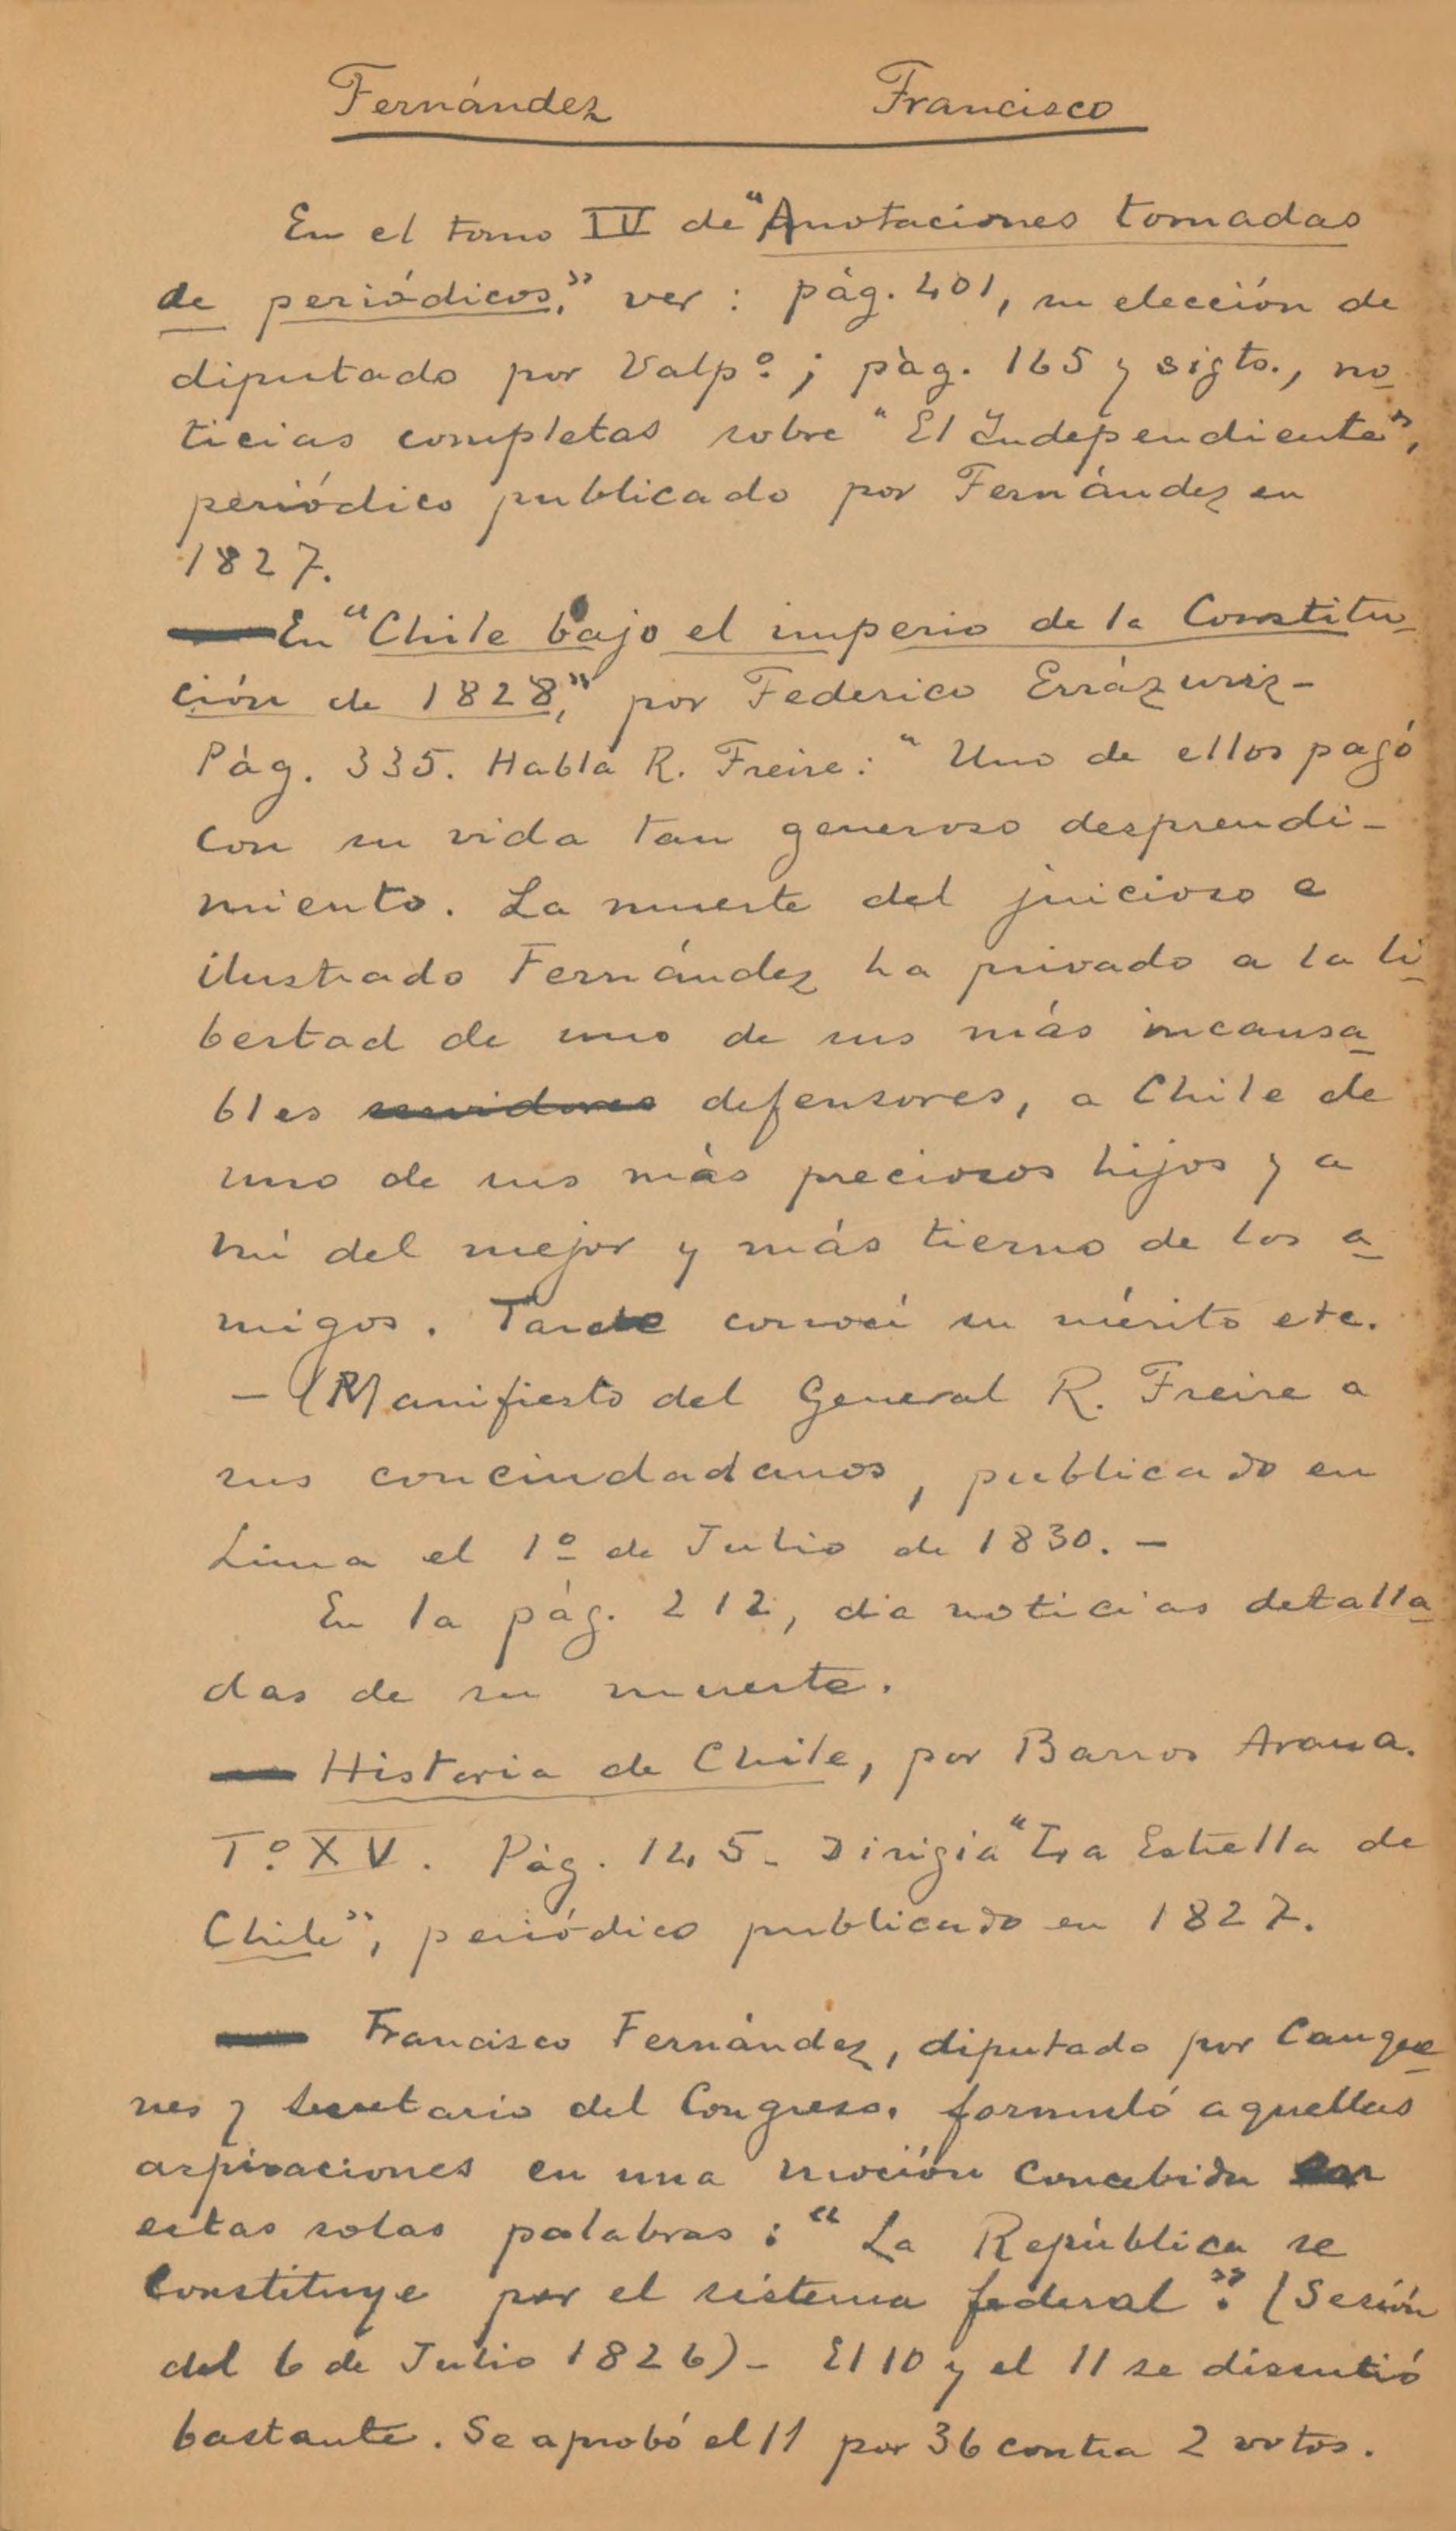 Fernández Francisco
En el tomo IV de "Anotaciones tomadas
de periódicos," ver: pág. 401, su elección de
diputado por Valpº; pág. 165 y sigts., no-
ticias completas sobre "El Independiente",
periódico publicado por Fernández en
1827.
— En "Chile bajo el imperio de la Constitu-
ción de 1828," por Federico Errázuriz-
Pág. 335. Habla R. Freire: "Uno de ellos pagó
con su vida tan generoso desprendi-
miento. La muerte del juicioso e
ilustrado Fernández ha privado a la li-
bertad de uno de sus más incansa-
bles servidores defensores, a Chile de
uno de sus más preciosos hijos y a
mí del mejor y más tierno de los a-
migos. Tarde conocí su mérito etc.
— (Manifiesto del General R. Freire a
sus conciudadanos, publicado en
Lima el 1º de Julio de 1830. —
En la pág. 212, da noticias detalla-
das de su muerte.
— Historia de Chile, por Barros Arana.
Tº XV. Pág. 145- Dirigía "La Estrella de
Chile", periódico publicado en 1827.
— Francisco Fernández, diputado por Cauque-
nes y secretario del Congreso, formuló aquellas
aspiraciones en una moción concebida en
estas solas palabras: "La República se
constituye por el sistema federal". (Sesión
del 6 de Julio 1826)- El 10 y el 11 se discutió
bastante. Se aprobó el 11 por 36 contra 2 votos.